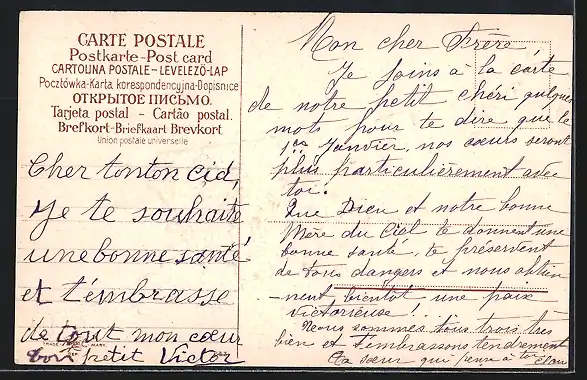 CARTE POSTALE
Postkarte - Post card
CARTOLINA POSTALE - LEVELEZÖ-LAP
Pocztówka-Karta korespondencyjna-Dopisnice
ОТКРЫТОЕ ПИСЬМО.
Tarjeta postal - Cartão postal.
Brefkort-Briefkaart Brevkort
Union postale universelle
Cher tonton Cid,
Je te souhaite
une bonne santé
et t'embrasse
de tout mon cœur
ton petit Victor
Mon cher Frère
Je joins à la carte
de notre petit chéri quelques
mots pour te dire que le
1er Janvier, nos cœurs seront
plus particulièrement avec
toi.
Que Dieu et notre bonne
Mère du Ciel te donnent une
bonne santé, te préservent
de tous dangers et nous obtien
-nent bientôt une paix
victorieuse!
Nous sommes tous trois très
bien et t'embrassons tendrement
Ta sœur qui pense à toi